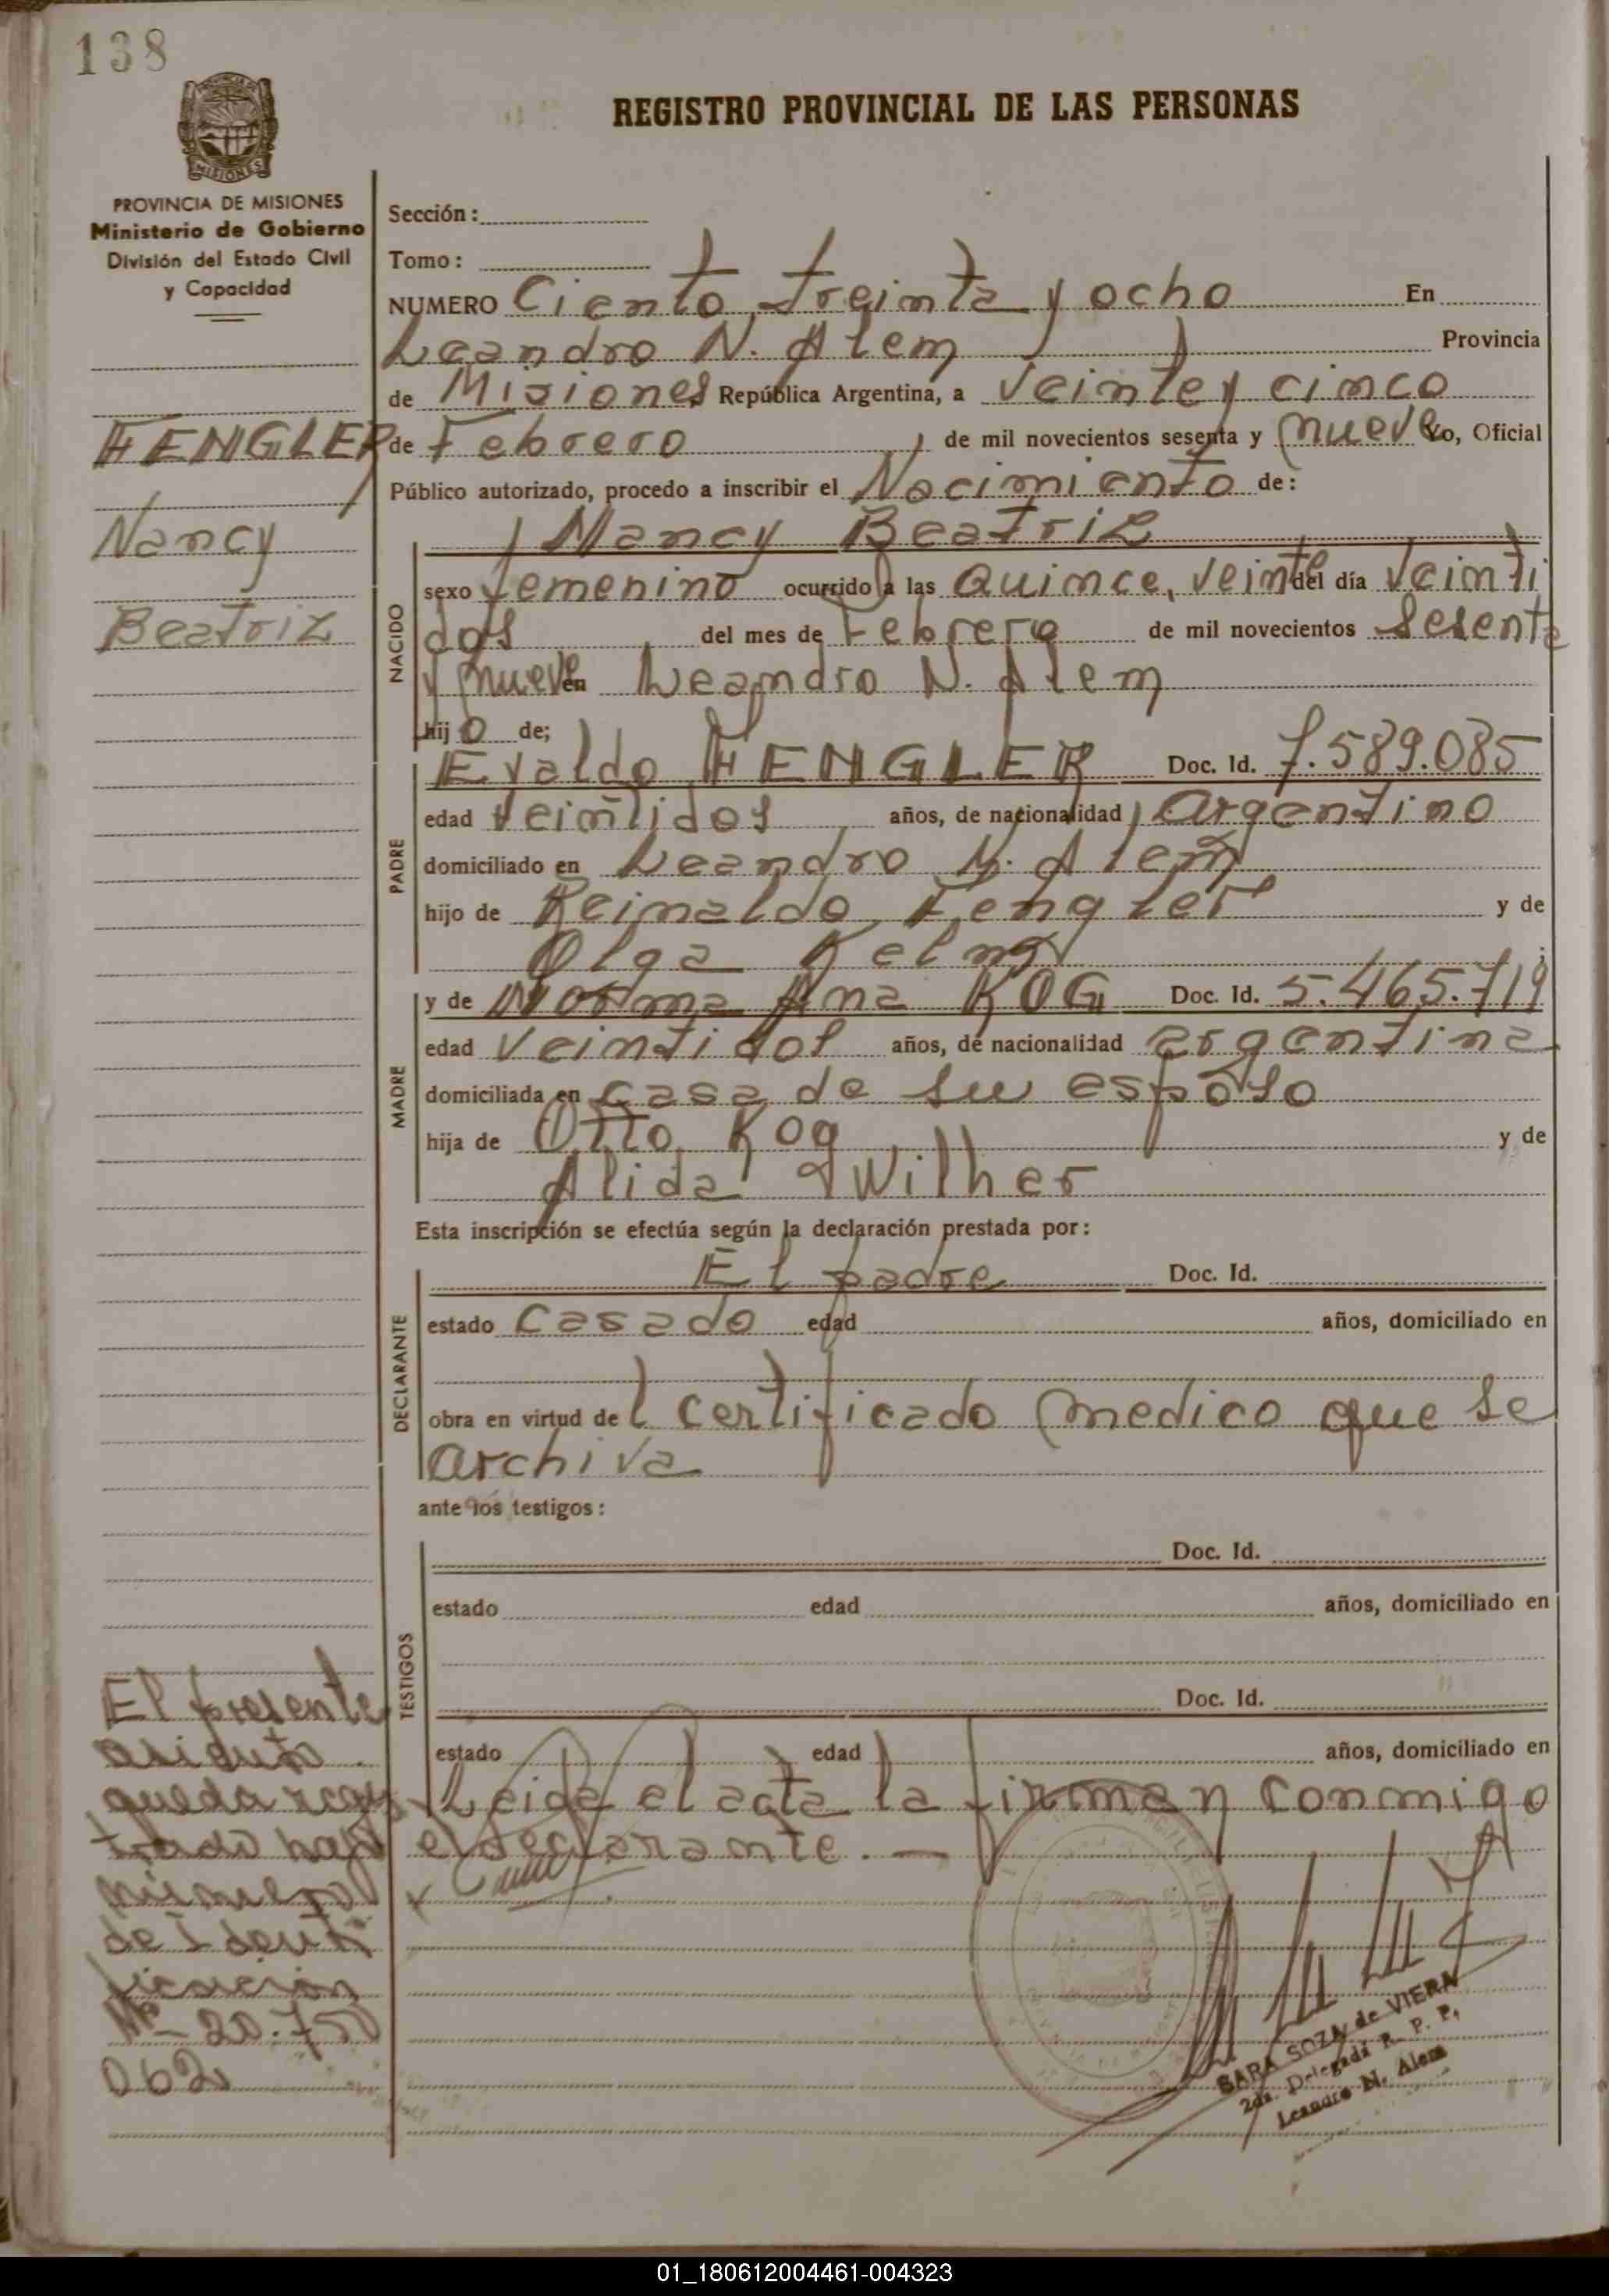 138
REGISTRO PROVINCIAL DE LAS PERSONAS
PROVINCIA DE MISIONES
Ministerio de Gobierno
División del Estado Civil
y Capacidad
FENGLER
Nancy
Beatriz
Sección:
Tomo:
NUMERO Ciento treinta y ocho En
Leandro N. Alem Provincia
de Misiones República Argentina, a veinte y cinco
de Febrero de mil novecientos sesenta y nueve Yo, Oficial
Público autorizado, procedo a inscribir el Nacimiento de:
NACIDO
Nancy Beatriz
sexo femenino ocurrido a las Quince, veinte del día veinti
dos del mes de Febrero de mil novecientos Sesenta
y nueve en Leandro N. Alem
hijo de;
PADRE
Evaldo FENGLER Doc. Id. 7.589.085
edad veintidos años, de nacionalidad Argentino
domiciliado en Leandro N. Alem
hijo de Reinaldo Fengler y de
Olga
MADRE
y de Norma Ana KOG Doc. Id. 5.465.719
edad veintidos años, de nacionalidad argentina
domiciliada en casa de su esposo
hija de Otto Kog y de
Alida Wilher
Esta inscripción se efectúa según la declaración prestada por:
DECLARANTE
El padre Doc. Id.
estado Casado edad años, domiciliado en
obra en virtud del certificado medico que se
archiva
ante los testigos:
TESTIGOS
Doc. Id.
estado edad años, domiciliado en
Doc. Id.
estado edad años, domiciliado en
Leida el acta la firman conmigo
el declarante.—
El presente
asiento
queda regis
trado bajo
número
de Identi
ficación
Nº- 20.750
062
SARA SOZA de VIERA
2da. Delegada R. P. P.
Leandro N. Alem
01_180612004461-004323